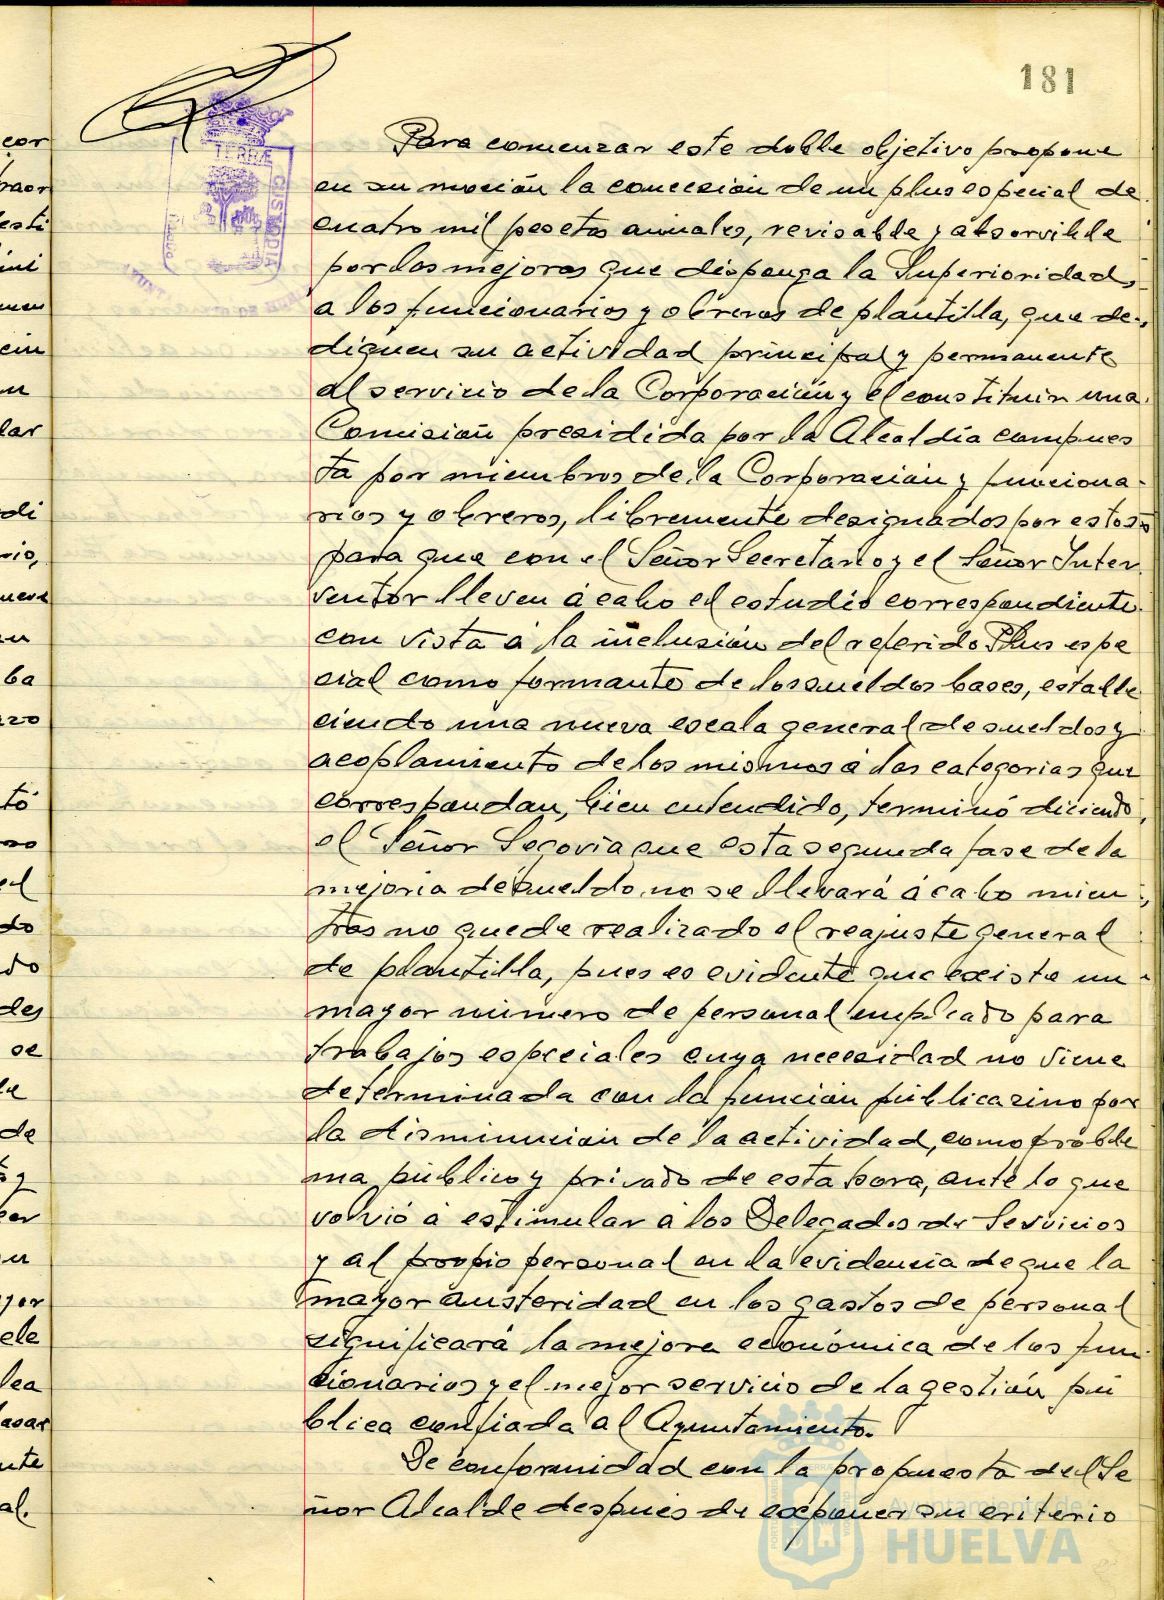 181
Para comenzar este doble objetivo propone
en su moción la concesión de un plus especial de
cuatro mil pesetas anuales, revisable y absorvible
por las mejoras que disponga la Superioridad,
a los funcionarios y obreros de plantilla, que de-
diquen su actividad principal y permanente
al servicio de la Corporación y el constituir una
Comisión presidida por la Alcaldía compues
ta por miembros de la Corporación y funciona-
rios y obreros, libremente designados por estos
para que con el Señor Secretario y el Señor Inter
ventor lleven á cabo el estudio correspondiente
con vista á la inclusión del referido Plus espe
cial como formante de los sueldos bases, estable
ciendo una nueva escala general de sueldos y
acoplamiento de los mismos á las categorias que
correspondan, bien entendido, terminó diciendo,
el Señor Segovia que esta segunda fase de la
mejoria de sueldo no se llevará á cabo mien
tras no quede realizado el reajuste general
de plantilla, pues es evidente que existe un
mayor número de personal empleado para
trabajos especiales cuya necesidad no viene
determinada con la función pública sino por
la disminución de la actividad, como proble
ma público y privado de esta hora, ante lo que
volvió á estimular á los Delegados de Servicios
y al propio personal en la evidencia de que la
mayor austeridad en los gastos de personal
significará la mejora económica de los fun
cionarios y el mejor servicio de la gestión pú
blica confiada al Ayuntamiento.
De conformidad con la propuesta del Se
ñor Alcalde después de exponer su criterio
Ayuntamiento de
HUELVA